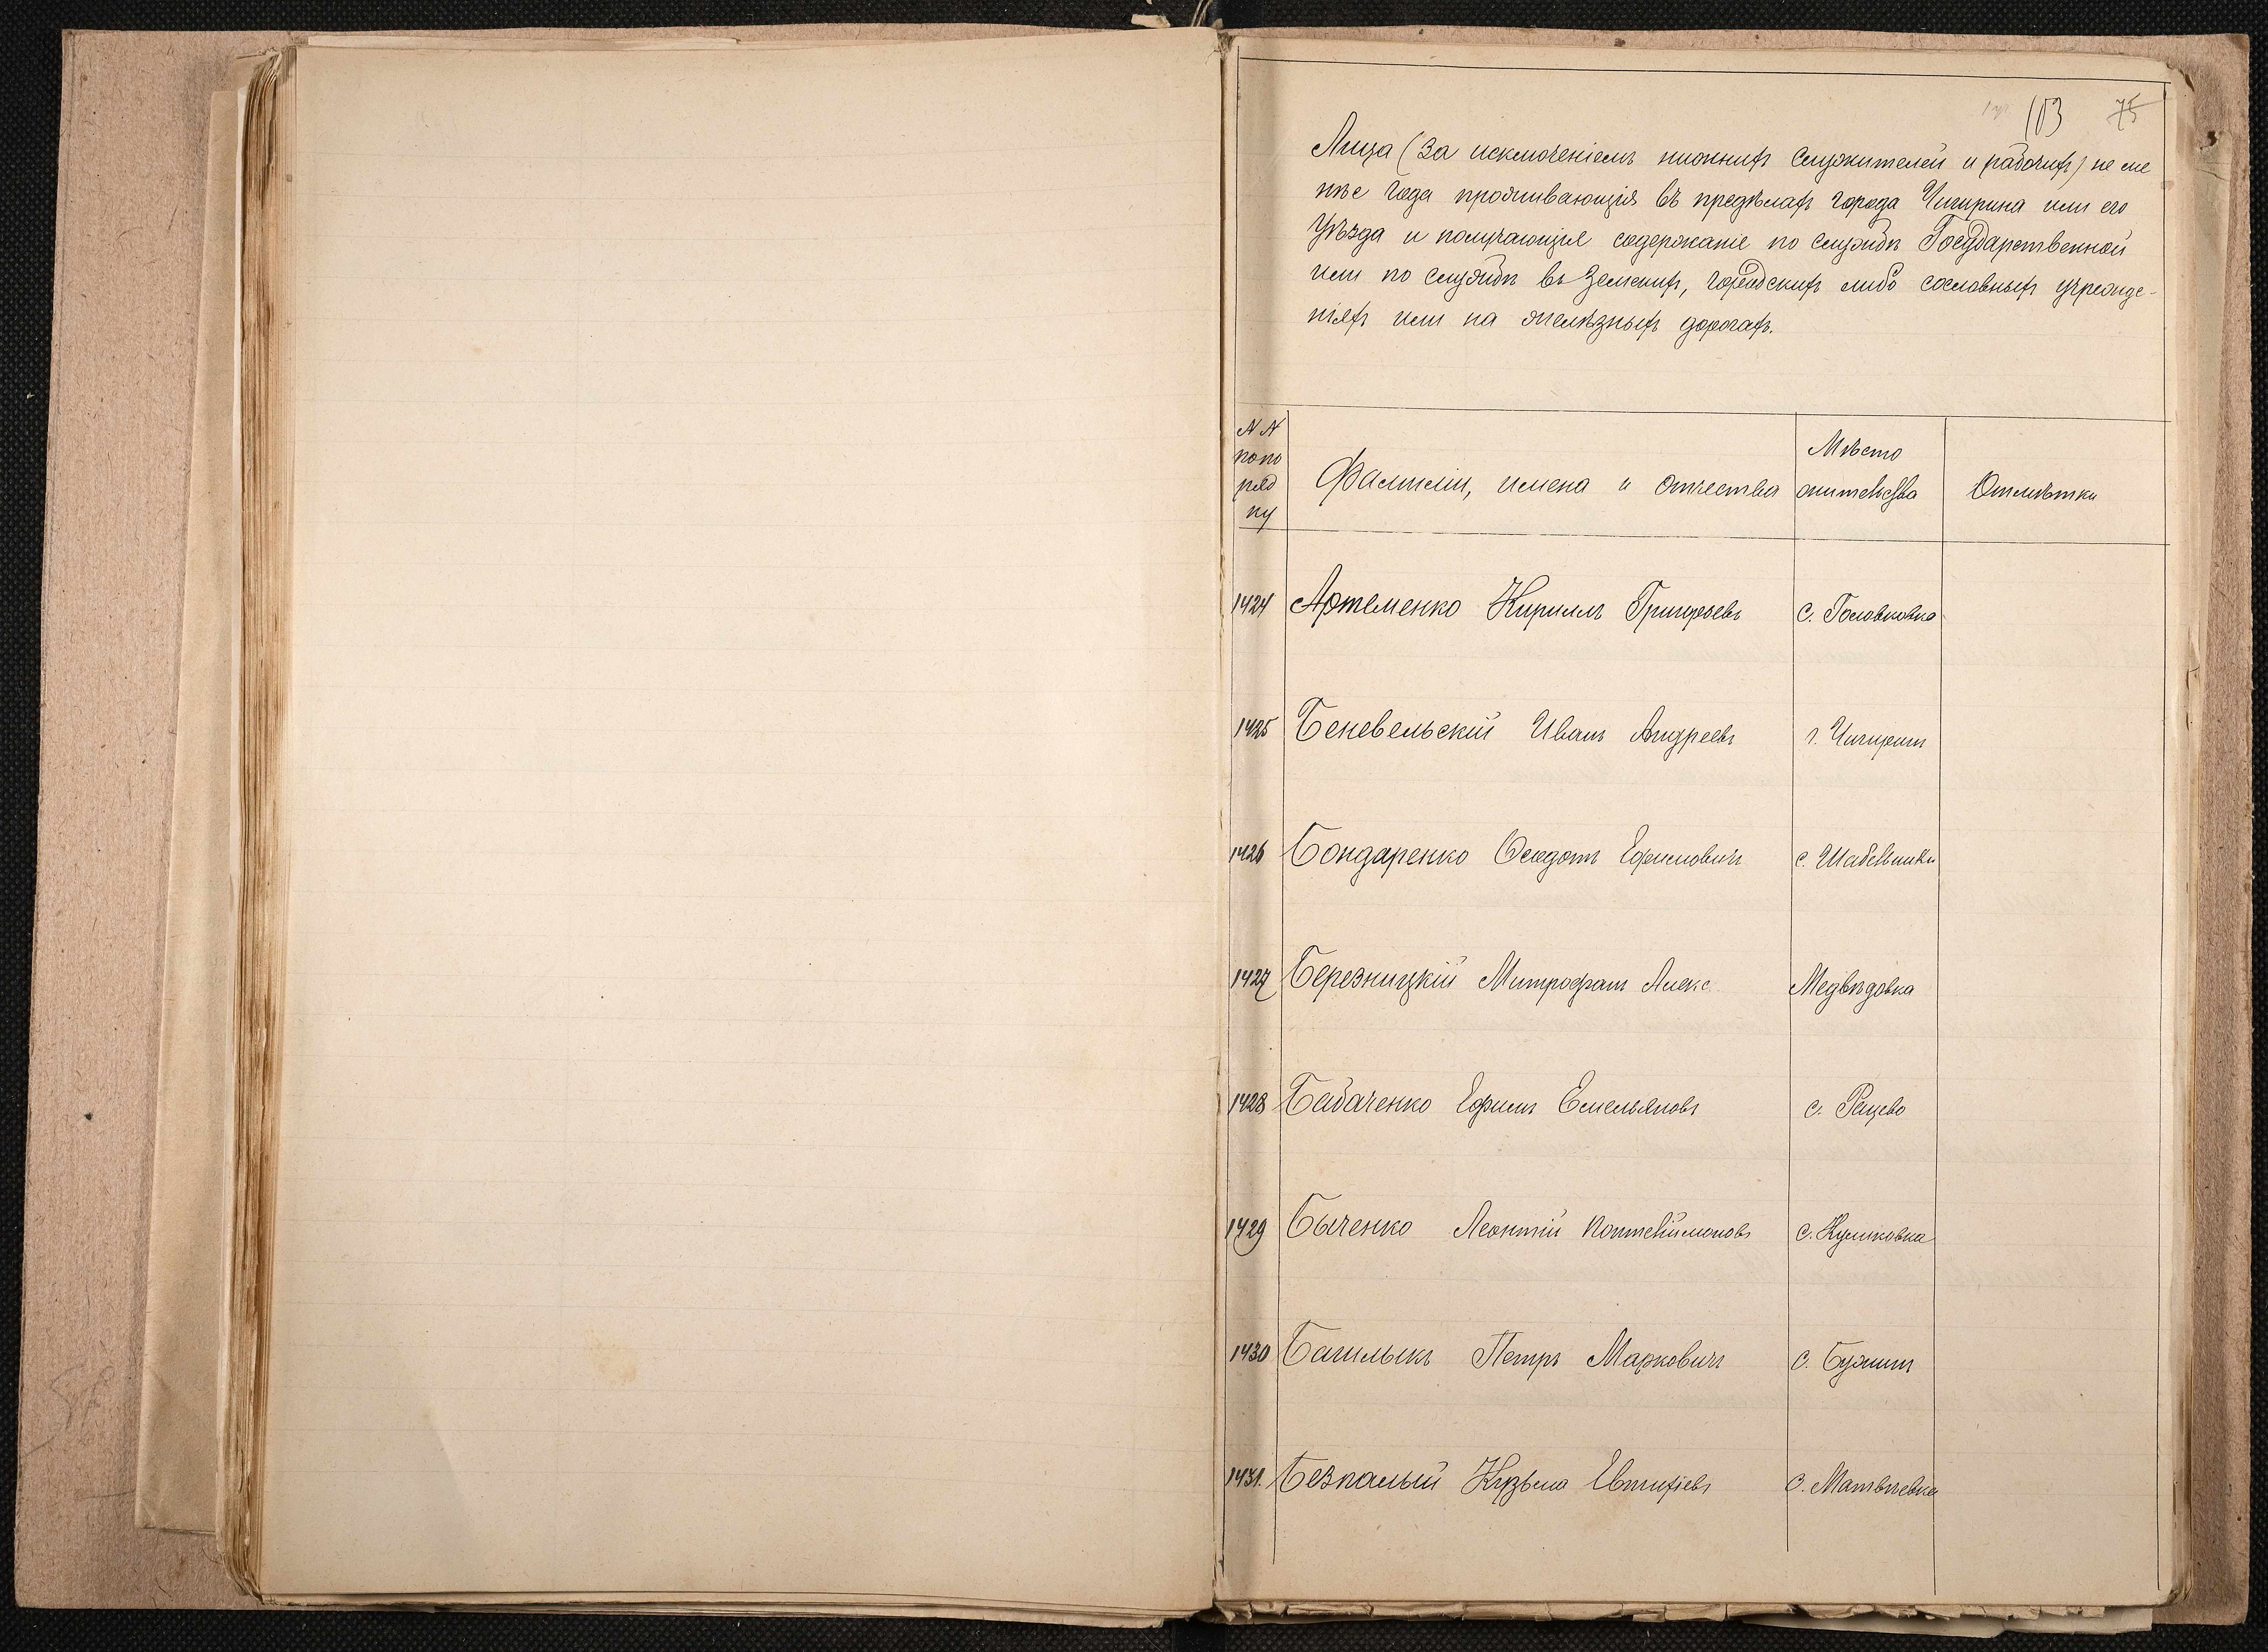 103 75
Лица (за исключеніемъ нижнихъ служителей и рабочихъ) не ме
нѣе года проживающія въ предѣлахъ города Чигирина или его
уѣзда и получающія содержаніе по службѣ Государственной
или по службѣ въ Земскихъ, городскихъ либо сословныхъ учрежде-
ніяхъ или на желѣзныхъ дорогахъ.
NN
по по
ряд
ку
Фамиліи, имена и отчества
Мѣсто
жительства
Отмѣтки
1424 Артеменко Кириллъ Григорьевъ с. Головковка
1425 Беневельскій Иванъ Андреевъ г. Чигиринъ
1426 Бондаренко Феодотъ Ефимовичъ с. Шабельники
1427 Березницкій Митрофанъ Алекс. Медвѣдовка
1428 Бабаченко Ефимъ Емельяновъ с. Рацево
1429 Быченко Леонтій Понтелѣимоновъ с. Куликовка
1430 Башлыкъ Петръ Марковичъ с. Бужинъ
1431. Безпалый Кузьма Евтихіевъ с. Матвѣевка